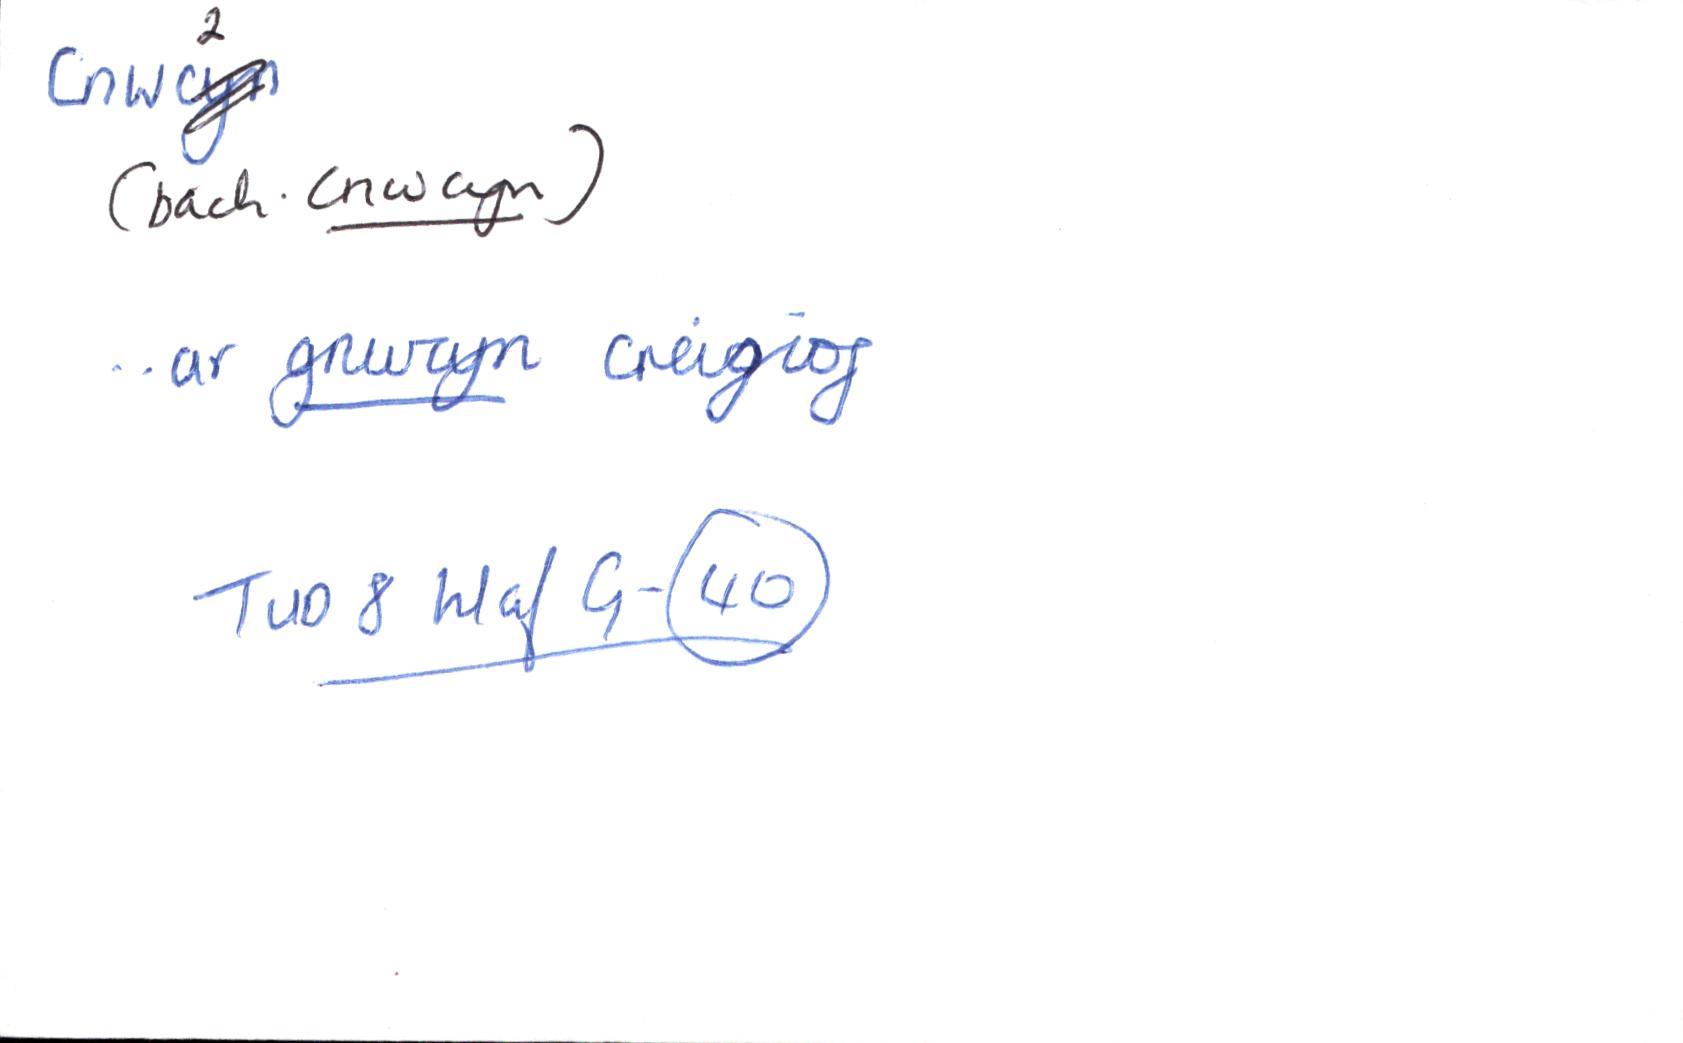 Cnwc²
(bach. cnwcyn)
..ar gnwcyn creigiog
TUD 8 Hlaf G-40